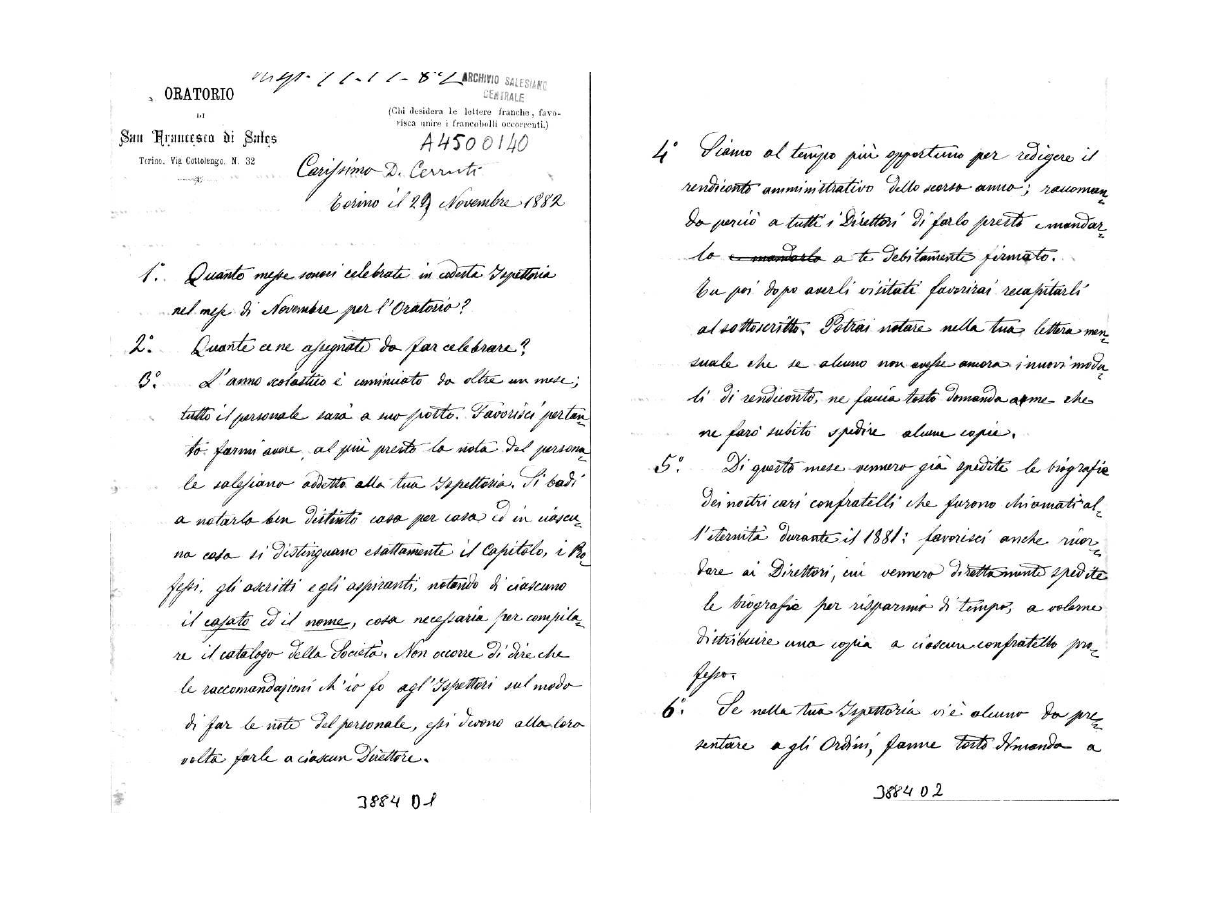 Risp. 11-11-82
ARCHIVIO SALESIANO
CENTRALE
ORATORIO
DI
San Francesco di Sales
Torino, Via Cottolengo, N. 32
(Chi desidera le lettere franche, favo-
risca unire i francobolli occorrenti.)
A4500140
Carissimo D. Cerruti
Torino il 29 Novembre 1882
1°. Quante messe sonosi celebrate in codesta Ispettoria
nel mese di Novembre per l'Oratorio?
2°. Quante ce ne assegnate da far celebrare?
3°. L'anno scolastico è cominciato da oltre un mese;
tutto il personale sarà a suo posto. Favorisci pertan=
to farmi avere al più presto la nota del persona=
le salesiano addetto alla tua Ispettoria. Si badi
a notarlo ben distinto casa per casa ed in ciascu=
na casa si distinguano esattamente il Capitolo, i Pro
fessi, gli ascritti e gli aspiranti, notando di ciascuno
il casato ed il nome, cosa necessaria per compila=
re il catalogo della Società. Non occorre di dire che
le raccomandazioni ch'io fo agl'Ispettori sul modo
di far le note del personale, essi devono alla loro
volta farle a ciascun Direttore.
3884 D1
4° Siamo al tempo più opportuno per redigere il
rendiconto amministrativo dello scorso anno; raccoman=
da perciò a tutti i Direttori di farlo presto e mandar=
lo e mandarlo a te debitamente firmato.
Tu poi dopo averli visitati favorirai recapitarli
al sottoscritto. Potrai notare nella tua lettera men=
suale che se alcuno non avesse ancora i nuovi modu=
li di rendiconto, ne faccia tosto domanda a me che
ne farò subito spedire alcune copie.
5° Di questo mese vennero già spedite le biografie
dei nostri cari confratelli che furono chiamati al=
l'eternità durante il 1881: favorisci anche ricor=
dare ai Direttori, cui vennero direttamente spedite
le biografie per risparmio di tempo, a volerne
distribuire una copia a ciascun confratello pro=
fesso.
6° Se nella tua Ispettoria vi è alcuno da pre=
sentare agli Ordini, fanne tosto dimanda a
3884 D2